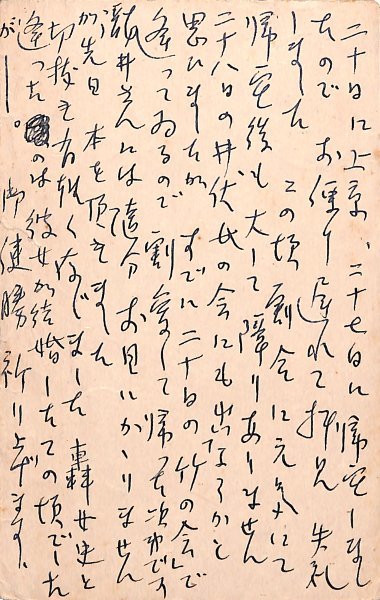 二十日に上京、二十七日に帰宅しまし
たので お便り遅れて拝見 失礼
しました この頃 割合に元気にて
帰宅後も大して障りありません
二十八日の井伏氏の会にも出ようかと
思いましたが すでに二十日の竹の会で
逢ってゐるので 割愛して帰った次第です
龍井さんには随分お目にかゝりません
が先日 本を頂きました 轟女史と
切抜きを有難く存じました
逢ったのは彼女が結婚したての頃でした
がー。 御健勝祈り上げます、